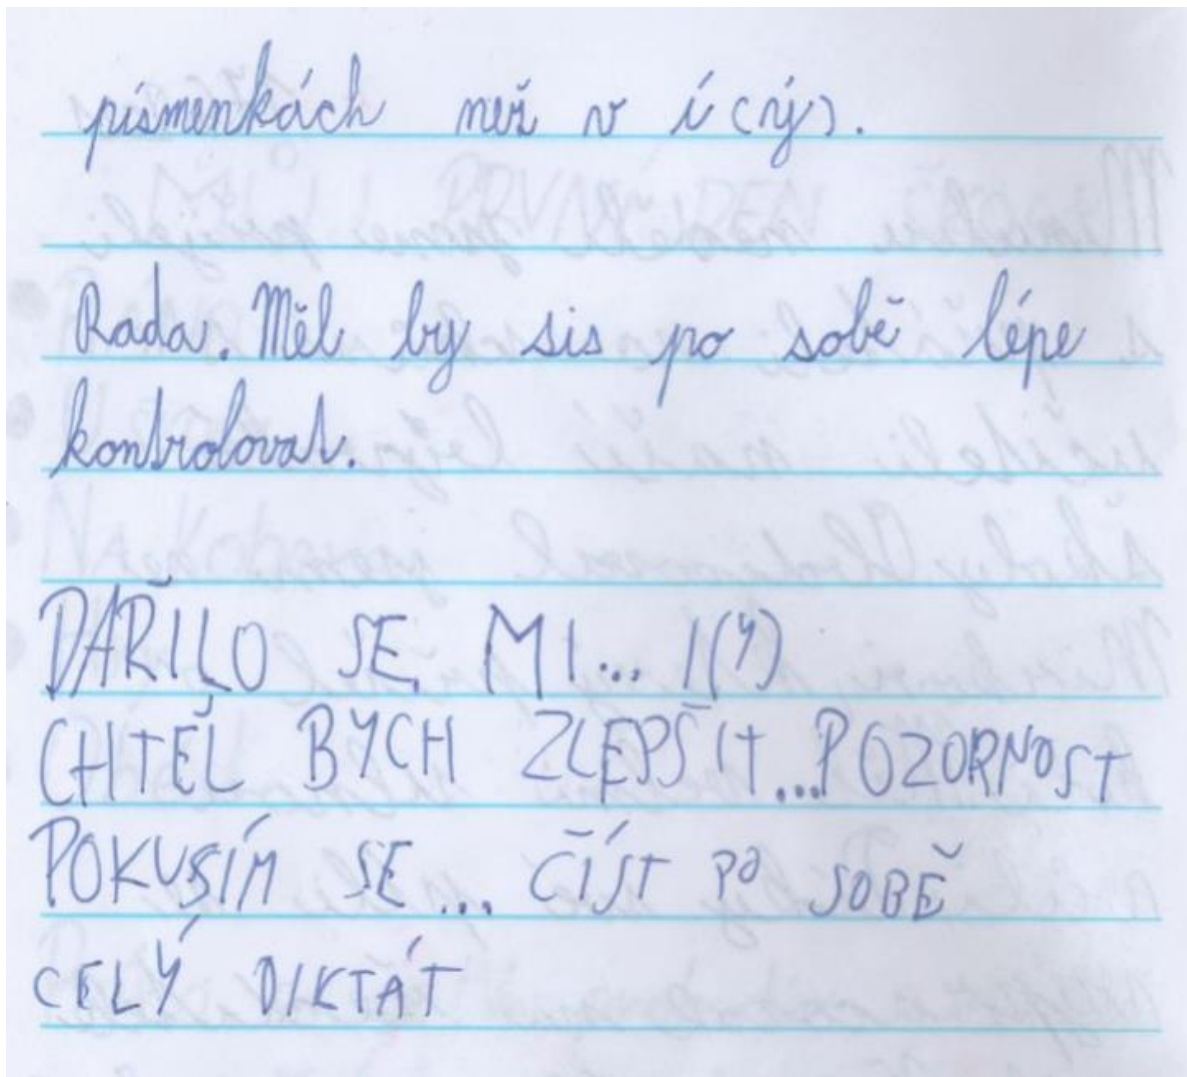 písmenkách než v í(ý).
Rada. Měl by sis po sobě lépe
kontrolovat.
DAŘILO SE MI... I(Y)
CHTĚL BYCH ZLEPŠIT...POZORNOST
POKUSÍM SE... ČÍST PO SOBĚ
CELÝ DIKTÁT